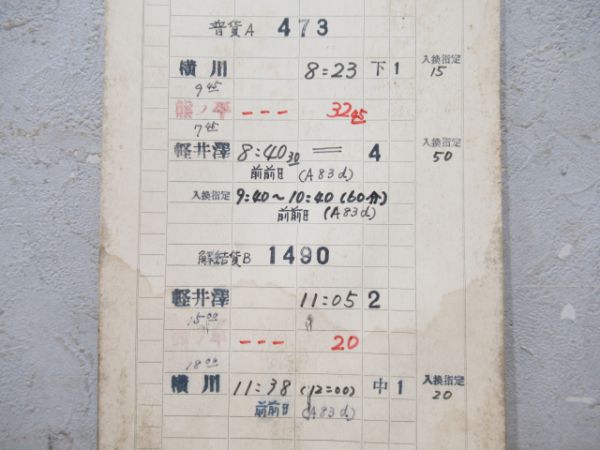 普貨A 473
横川 8:23 下1 入換指定 15
9 45
熊ノ平 --- 32 45
7 45
軽井澤 8:40 30 = 4 入換指定 50
前前日 (A83d)
入換指定 9:40〜10:40 (60分)
前前日 (A83d)
解結貨B 1490
軽井澤 11:05 2
15 00
熊ノ平 --- 20
18 00
横川 11:38 (12=00) 中1 入換指定 20
前前日 (A83d)